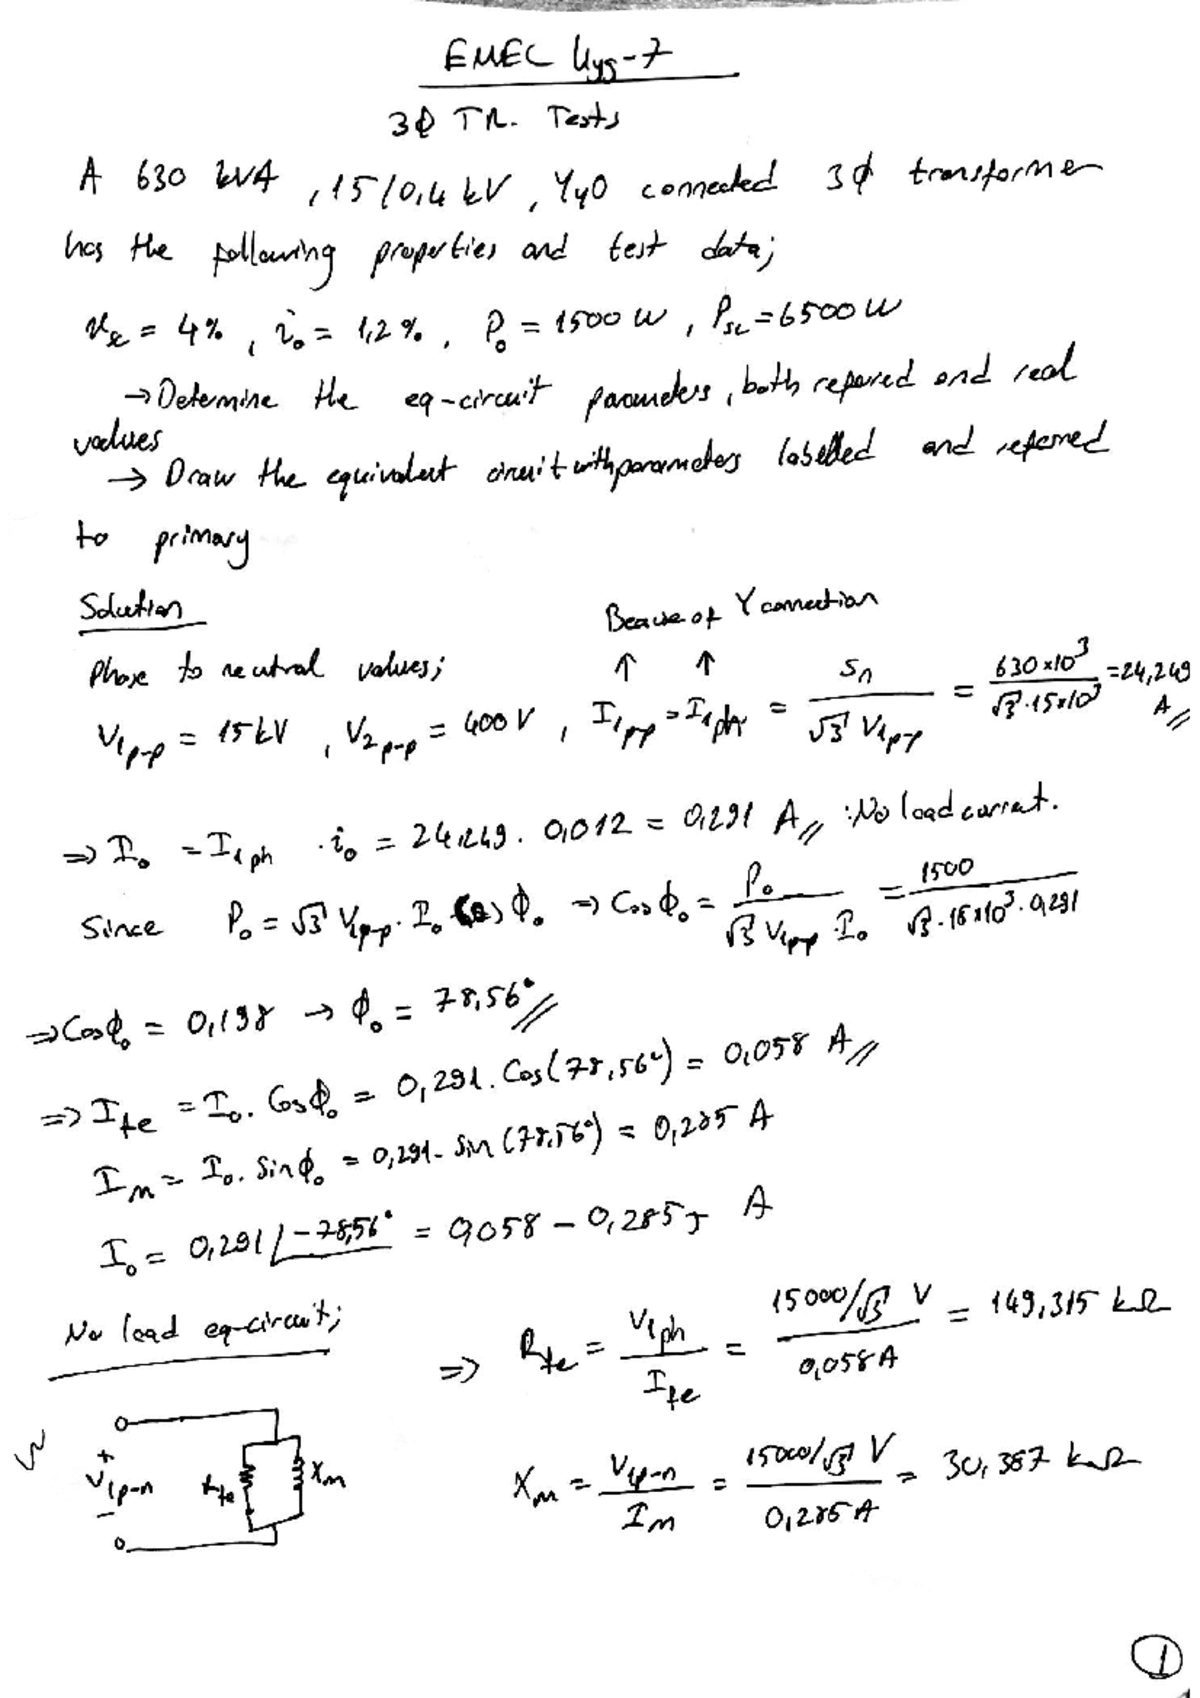 EMEC Uyg-7
3Φ TR. Tests
A 630 kVA, 15/0,4 kV, Yy0 connected 3φ transformer
has the following properties and test data;
uk = 4%, i₀ = 1,2%, P₀ = 1500 W, Psc = 6500 W
→ Determine the eq-circuit parameters, both refered and real
values
→ Draw the equivalent circuit with parameters labelled and referred
to primary
Solution
Because of Y connection
Phase to neutral values;
V1p-p = 15 kV, V2p-p = 400 V, I1pp = I1ph = Sn / √3 V1p-p = 630x10³ / √3.15x10³ = 24,249 A
⇒ I₀ = I1ph . i₀ = 24,249 . 0,012 = 0,291 A : No load current.
Since P₀ = √3 V1p-p . I₀ Cos Φ₀ ⇒ Cos Φ₀ = P₀ / √3 V1p-p I₀ = 1500 / √3.15x10³.0,291
⇒ Cos Φ₀ = 0,198 → Φ₀ = 78,56°
⇒ Ife = I₀ . Cos Φ₀ = 0,291 . Cos(78,56°) = 0,058 A
Im = I₀ . Sin Φ₀ = 0,291 . Sin(78,56°) = 0,285 A
I₀ = 0,291 ∠-78,56° = 0,058 - 0,285 j A
No load eq-circuit;
⇒ Rfe = V1ph / Ife = 15000/√3 V / 0,058 A = 149,315 kΩ
+
V1p-n
-
Rfe
Xm
Xm = V1p-n / Im = 15000/√3 V / 0,285 A = 30,387 kΩ
1